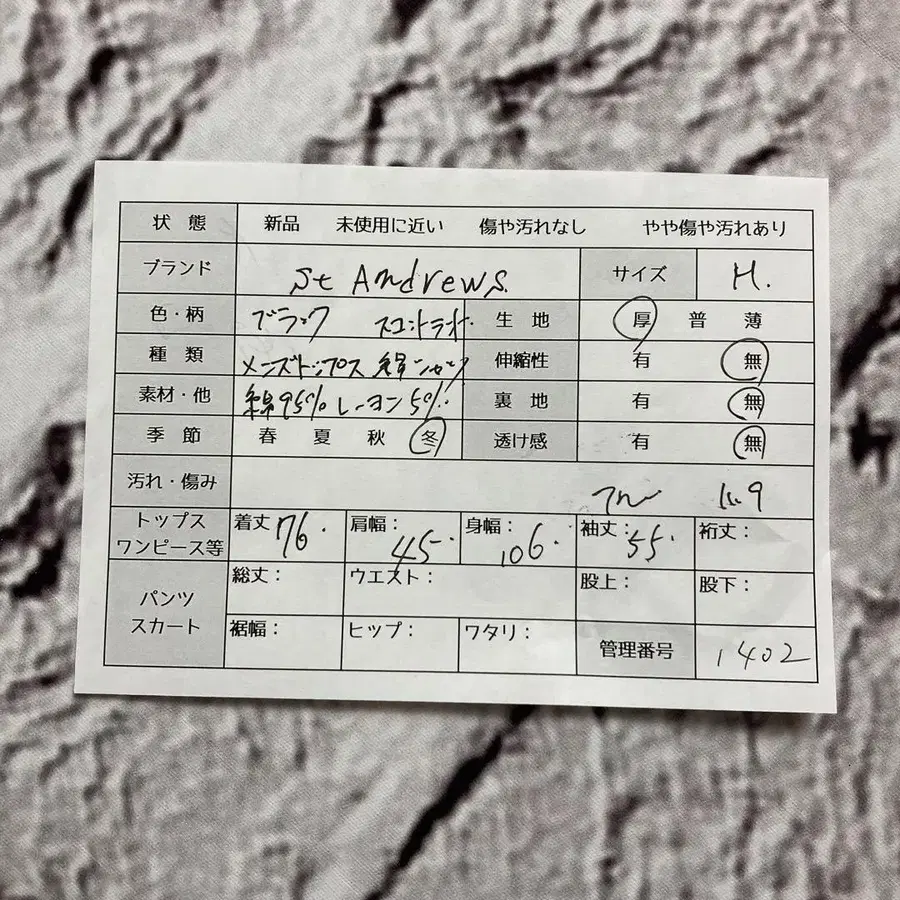 状 態 新品 未使用に近い 傷や汚れなし やや傷や汚れあり
ブランド St Andrews サイズ M.
色・柄 ブラック 生 地 厚 普 薄
種 類 メンズトップス 伸縮性 有 無
素材・他 綿95% レーヨン5% 裏 地 有 無
季 節 春 夏 秋 冬 透け感 有 無
汚れ・傷み
トップス ワンピース等 着丈 76. 肩幅: 45. 身幅: 106. 袖丈: 55. 裄丈:
パンツ スカート 総丈: ウエスト: 股上: 股下:
裾幅: ヒップ: ワタリ: 管理番号 1402